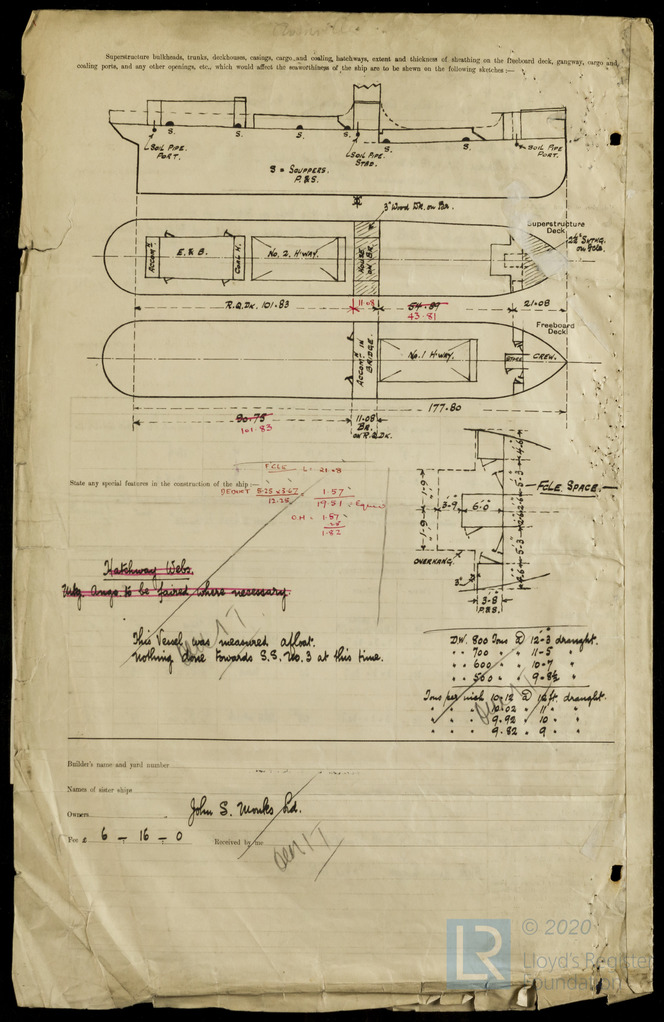 Superstructure bulkheads, trunks, deckhouses, casings, cargo and coaling hatchways, extent and thickness of sheathing on the freeboard deck, gangway, cargo and
coaling ports, and any other openings, etc., which would affect the seaworthiness of the ship are to be shewn on the following sketches:—
S. S. S. S. S. S.
SOIL PIPE. PORT.
SOIL PIPE STBD.
SOIL PIPE PORT.
S = SCUPPERS.
P. & S.
3" Wood Dk. on Br.
Superstructure
Deck
2½" SHTHG.
ACCOMT.
E. & B.
COAL H.
No. 2. H'WAY.
HOUSE ON BR.
R.Q.DK. 101.83
11.08
54.89
43.81
21.08
Freeboard
Deck
ACCOMT. IN BRIDGE.
No. 1 H'WAY.
STORE
CREW.
177.80
90.75
101.83
11.08
BR.
ON R.Q.DK.
FCLE L = 21.08
State any special features in the construction of the ship:—
DEDUCT 5.25 x 3.67
12.25
1.57
19.51
O.H = 1.57
1.82
FCLE. SPACE.
1'-9"
1'-9"
3'-9"
6'-0"
4'-6"
5'-3"
2'-6"
2'-6"
5'-3"
4'-6"
OVERHANG.
3"
3'-8"
P.&S.
Hatchway Webs.
to be faired where necessary
This Vessel was measured afloat.
Nothing done towards S.S. No. 3 at this time.
D.W. 800 Tons @ 12-3 draught.
" " 700 " " 11-5 "
" " 600 " " 10-7 "
" " 500 " " 9-8½ "
Tons per inch 10.12 @ 12 ft. draught.
" " " 10.02 " 11 " "
" " " 9.92 " 10 " "
" " " 9.82 " 9 " "
Builder's name and yard number
Names of sister ships
Owners John S. Monks Ltd.
Fee £ 6 - 16 - 0 Received by me
LR © 2020
Lloyd's Register
Foundation